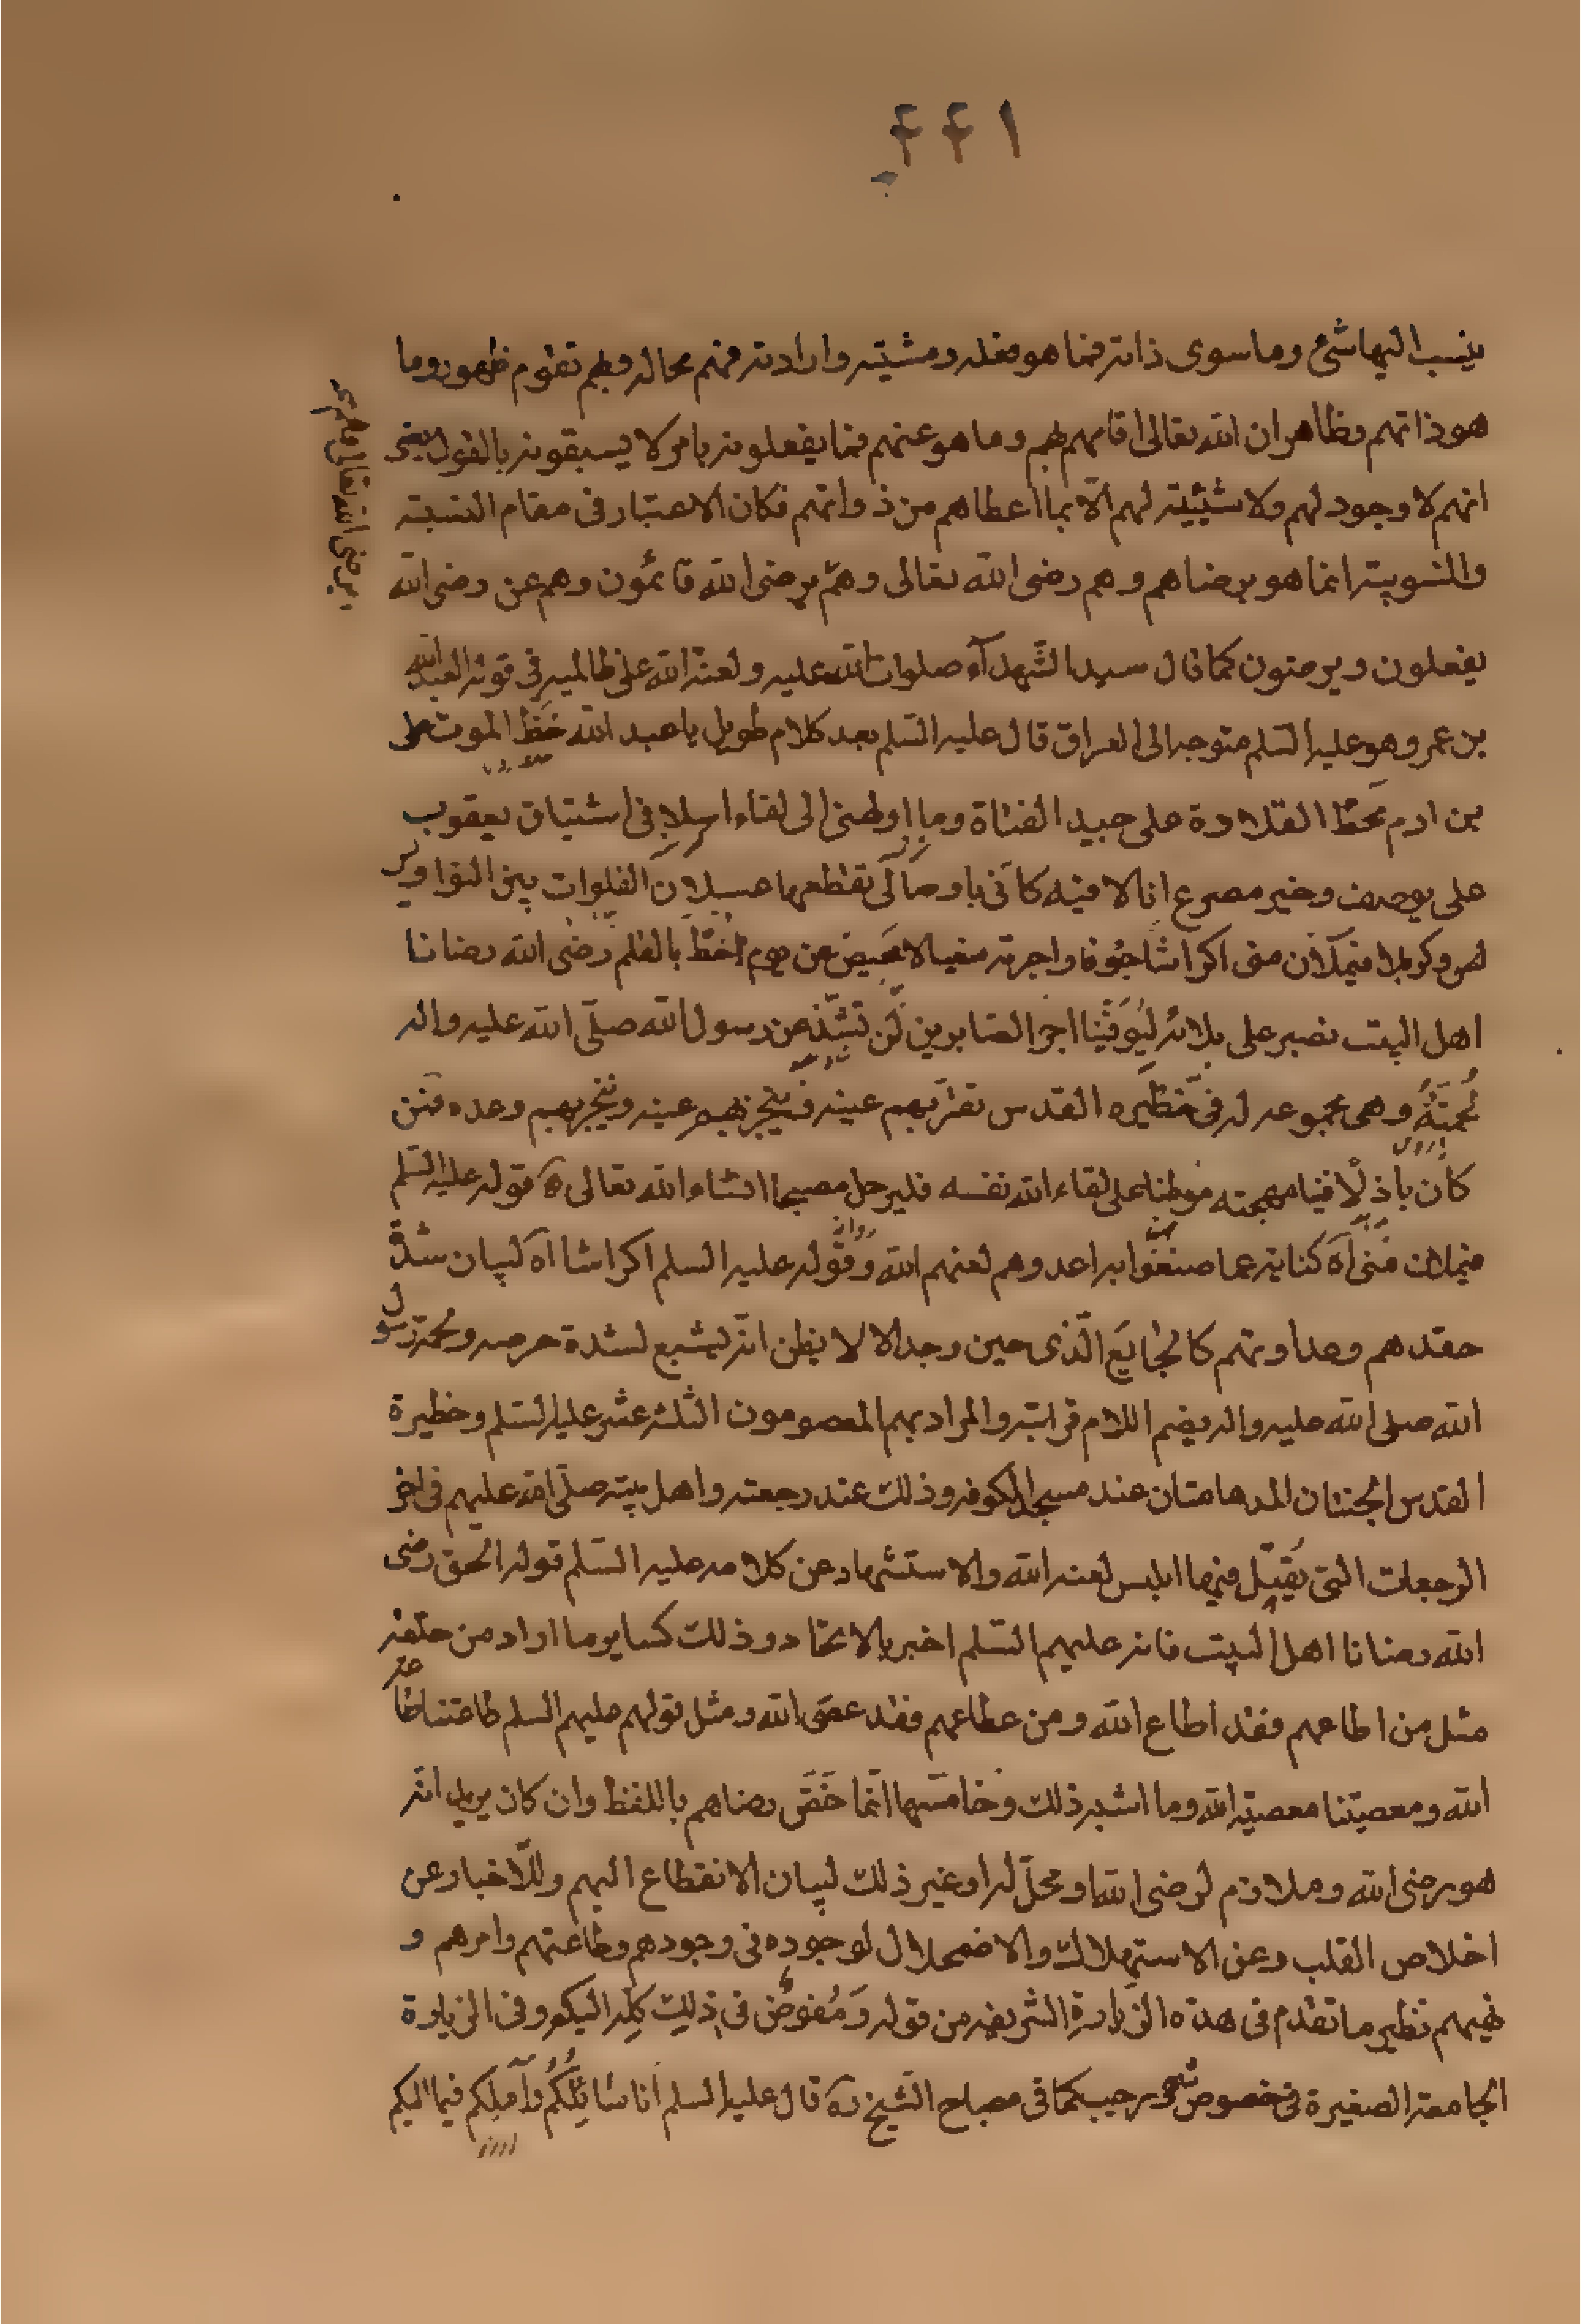 ١٤٤
ينسب اليها شئ وما سوى ذاته فمنا هو فعله ومشيته وارادته فهم محاله وبهم تقوم ظهوره وما
هو ذاتهم فظاهر ان الله تعالى اقامهم بهم وما هو عنهم فما يفعلونه بامره لا يسبقونه بالقول يعنى
انهم لا وجود لهم ولا شيئية لهم الّا بما اعطاهم من ذواتهم فكان الاعتبار فى مقام النسبة
والتسوية انما هو برضاهم وهم رضى الله تعالى وهم برضى الله قائمون وهم عن رضى الله
برضى الله تعالى
يفعلون ويرضون كما قال سيد الشّهدآء صلوات الله عليه ولعنة الله على ظالميه فى قوله لعبد الله
بن عمر وهو عليه السّلم متوجه الى العراق قال عليه السّلم بعد كلام طويل يا عبد الله خُطَّ الموت على
بن ادم مخطّ القلادة على جيد الفتاة وما اولهنى الى لقاء اسلافى اشتياق يعقوب
على يوسف وخير مصرع انا لاقيه كانّى باوصالى تقطعها عسلان الفلوات بين النواويس
وكربلا فيملان منى اكراشا جوفا واجربة سغبا لا محيص عن يوم خُطّ بالقلم رضى الله رضانا
اهل البيت نصبر على بلائه ليُوَفّينا اجر الصابرين لن تشذّ عن رسول الله صلّى الله عليه واله
لحمته وهى مجموعه له فى حظيره القدس تقرّ بهم عينه وينجز بهم وعده من
كان باذلًا فينا مهجته موطنا على لقاء الله نفسه فليرحل مصبحا انشاء الله تعالى ه قوله عليه السّلم
فيملان منى اه كناية عما صنعوا به اعدوهم لعنهم الله وقوله عليه السلم اكراشا اه لبيان شدّة
حقدهم وعداوتهم كالجايع الّذى حين وجد الاكلا يظن انه ليشبع لشدة حرصه ولحمة رسول
الله صلى الله عليه واله بضم اللام قرابته والمراد بهم المعصومون الثلثه عشر عليه السّلم وحظيرة
القدس الجنتان المدهامتان عند مسجد الكوفه وذلك عند رجعته واهل بيته صلّى الله عليهم فى اخر
الرجعات التى يُقتَل فيها ابليس لعنه الله والاستشهاد من كلامه عليه السّلم قوله الحق رضى
الله رضانا اهل البيت فانه عليهم السّلم اخبر بالاتحاد وذلك كساير ما اراد من خلقه
مثل من اطاعهم فقد اطاع الله ومن عصاهم فقد عصى الله ومثل قولهم عليهم السلم طاعتنا طاعة
الله ومعصيتنا معصية الله وما اشبه ذلك وخامسها انّما خصّ رضاهم باللفظ وان كان يريد انه
هو رضى الله وملازم لرضى الله او محلّ له او غير ذلك لبيان الانقطاع اليهم وللاخبار عن
اخلاص القلب وعن الاستهلاك والاضمحلال لوجوده فى وجودهم وطاعتهم وامرهم و
نهيهم نظير ما تقدم فى هذه الزّيارة الشريفه من قوله وَمُفوِّضٌ فى ذلِك كلِّه اليكم وفى الزيارة
الجامعة الصغيرة فى خصوص شهر رجب كما فى مصباح الشّيخ ره قال عليه السلم أنا سَائِلُكُمْ وآمِلُكم فيما اليكم